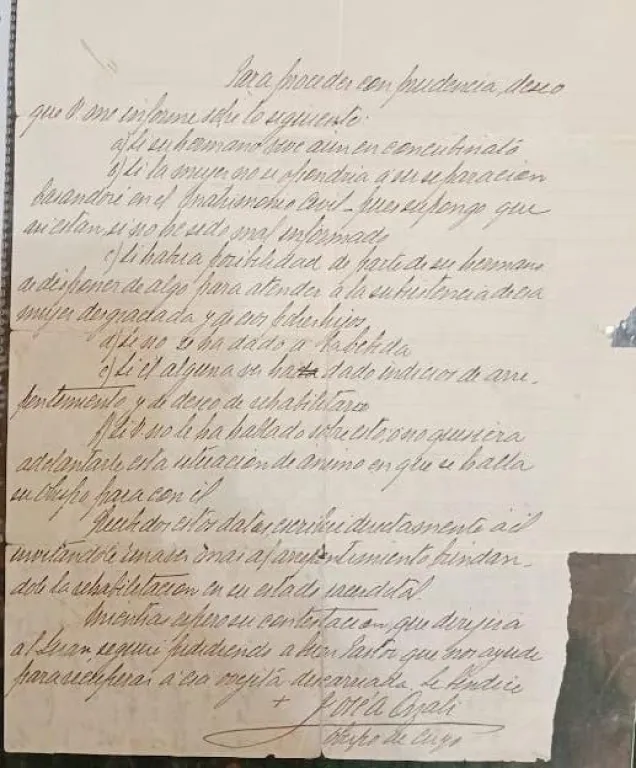 Para proceder con prudencia, deseo
que V. me informe sobre lo siguiente:
a) Si su hermano vive aún en concubinato
b) Si la mujer no se opondria á su separacion
basandose en el matrimonio civil - pues supongo que
asi estan, si no he sido mal informado
c) Si habria posibilidad de parte de su hermano
de disponer de algo para atender á la subsistencia de esa
mujer desgraciada y de esos pobres hijos
d) Si no se ha dado a la bebida
e) Si él alguna vez ha dado indicios de arre-
pentimiento y de deseo de rehabilitarse
f) Si V. no le ha hablado sobre esto, o no quisiera
adelantarle esta situacion de animo en que se halla
su Obispo para con él
Recibidos estos datos, escribiré directamente á él
invitandole una vez mas al arrepentimiento
dole la rehabilitacion en su estado sacerdotal
Mientras espero su contestacion, que dirigirá
a San Juan seguiré pidiendo a Buen Pastor que nos ayude
para recuperar á esa ovejita descarriada. Le bendice
+ José A Orzali
Obispo de Cuyo